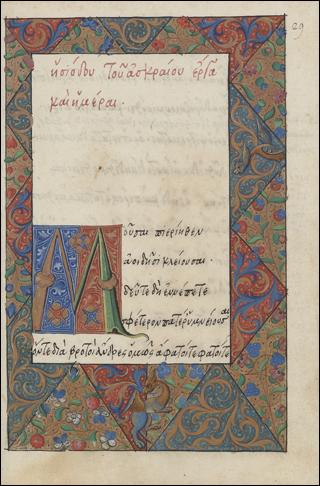 29
ἡσιόδου τοῦ ἀσκραίου ἔργα
καὶ ἡμέραι.
Μοῦσαι πιερίηθεν
ἀοιδῇσι κλείουσαι.
δεῦτε δὴ ἐννέπετε
σφέτερον πατέρ ὑμνείουσαι
ὅντε διὰ βροτοὶ ἄνδρες ὁμῶς ἄφατοί τε φατοί τε